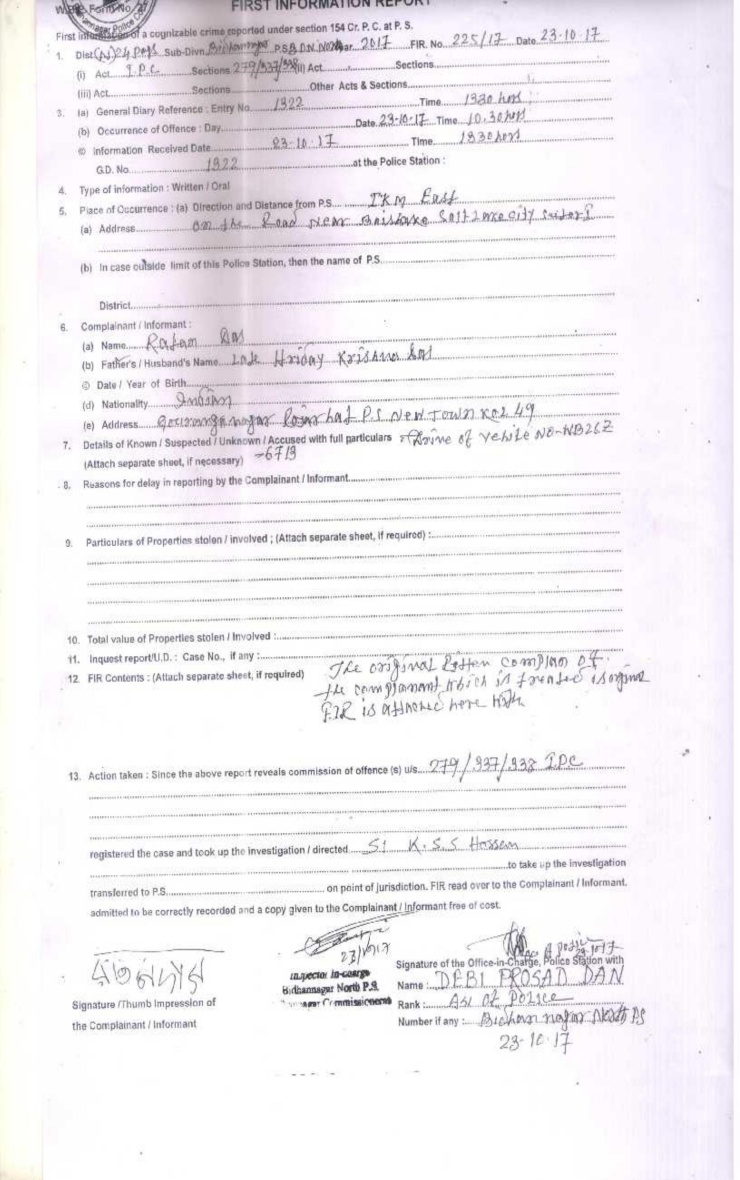 FIRST INFORMATION REPORT
First information of a cognizable crime reported under section 154 Cr. P. C. at P. S.
1. Dist (N) 24 Pgs Sub-Divn. Bidhannagar P.S. B.D.N. North Year 2017 FIR. No. 225/17 Date 23-10-17
(i) Act I.P.C Sections 279/337/338 (ii) Act Sections
(iii) Act Sections Other Acts & Sections
3. (a) General Diary Reference : Entry No. 1322 Time 1830 hrs
(b) Occurrence of Offence : Day Date 23-10-17 Time 10.30 hrs
© Information Received Date 23-10-17 Time 1830 hrs
G.D. No. 1322 at the Police Station :
4. Type of information : Written / Oral
5. Place of Occurrence : (a) Direction and Distance from P.S. 1KM East
(a) Address on the Road near Salt Lake city
(b) In case outside limit of this Police Station, then the name of P.S.
District
6. Complainant / Informant :
(a) Name Ratan Das
(b) Father's / Husband's Name Late Hriday Krishna Das
© Date / Year of Birth
(d) Nationality Indian
(e) Address P.S New Town Kol 49
7. Details of Known / Suspected / Unknown / Accused with full particulars of vehile NO-WB26Z
(Attach separate sheet, if necessary) -6713
8. Reasons for delay in reporting by the Complainant / Informant
9. Particulars of Properties stolen / involved ; (Attach separate sheet, if required) :
10. Total value of Properties stolen / Involved :
11. Inquest report/U.D. : Case No., if any :
12 FIR Contents : (Attach separate sheet, if required) The original complan of
the complanant which is treated
FIR is attached here with
13. Action taken : Since the above report reveals commission of offence (s) u/s. 279/337/338 IPC
registered the case and took up the investigation / directed SI K.S.S Hossen
to take up the investigation
transferred to P.S. on point of jurisdiction. FIR read over to the Complainant / Informant.
admitted to be correctly recorded and a copy given to the Complainant / Informant free of cost.
রতন দাস
Signature /Thumb Impression of
the Complainant / Informant
23/10/17
Inspector in-charge
Bidhannagar North P.S.
Commissionerate
29-10-17
Signature of the Office-in-Charge, Police Station with
Name : DEBI PROSAD DAN
Rank : ASI of Police
Number if any : Bidhannagar North PS
23-10-17